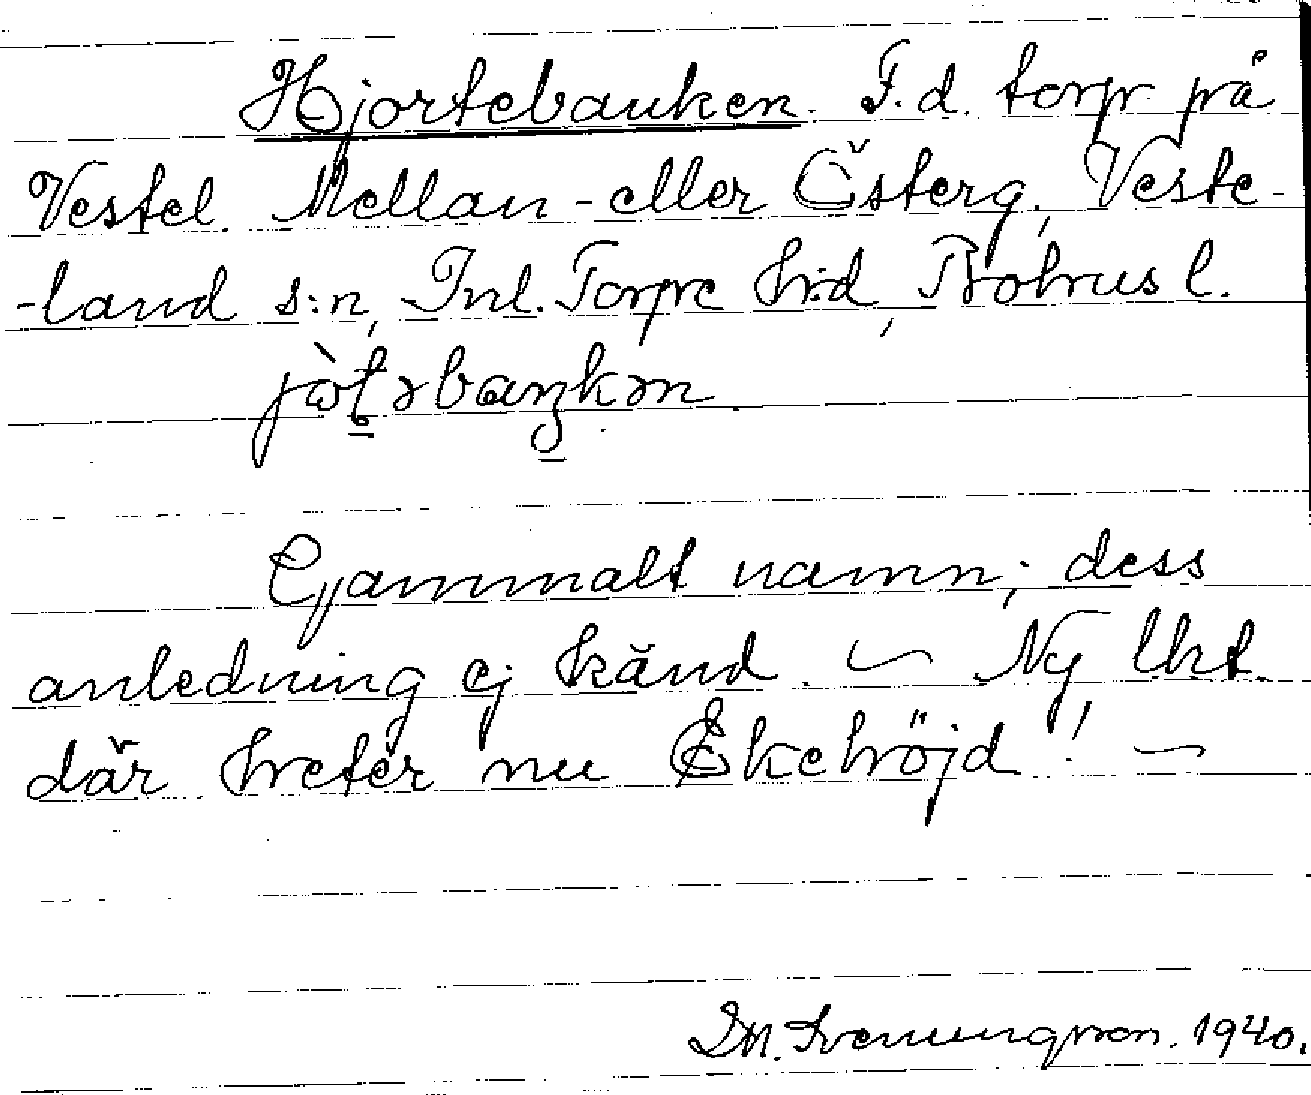 Hjortebauken. F.d. torp på
Vestel. Mellan- eller Österg., Veste-
-land s:n, Inl. Torpe h:d, Bohus l.
Gammalt namn; dess
anledning ej känd. — Ny lht.
där heter nu Ekehöjd! —
D.M. Svenungsson. 1940.